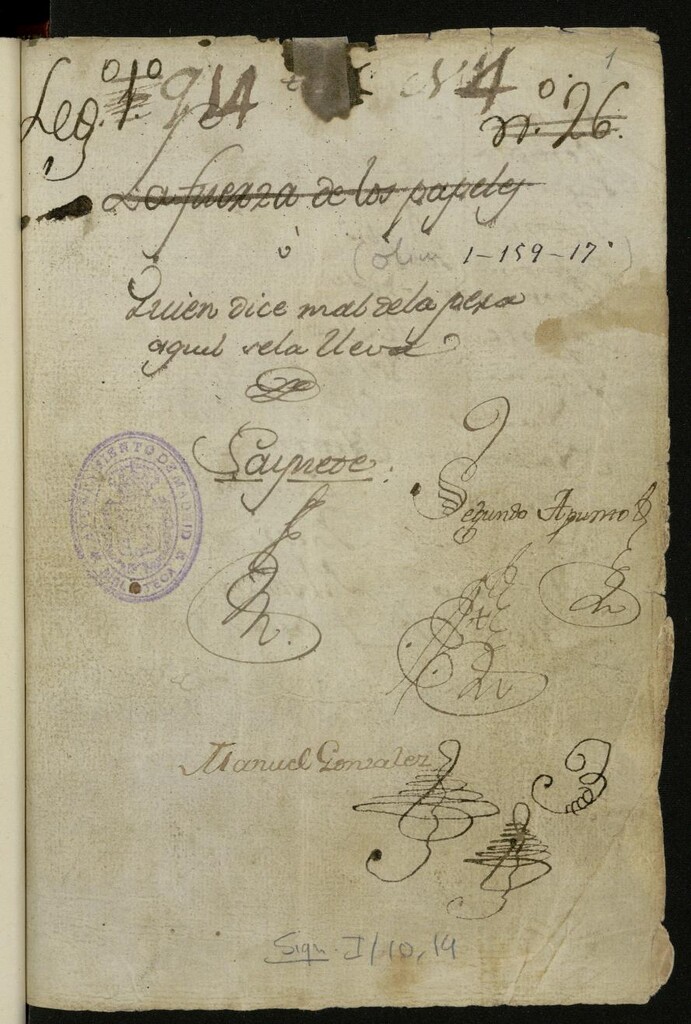 1
Leg. 1.º 914 N 4
n.º 26.
La fuerza de los papeles
ó
(olim 1-159-17)
Quien dice mal de la pera
aquel se la lleva
Saynete.
Segundo Apunto
AYUNTAMIENTO DE MADRID
BIBLIOTECA
Manuel Gonzalez
Sign. I/10,14